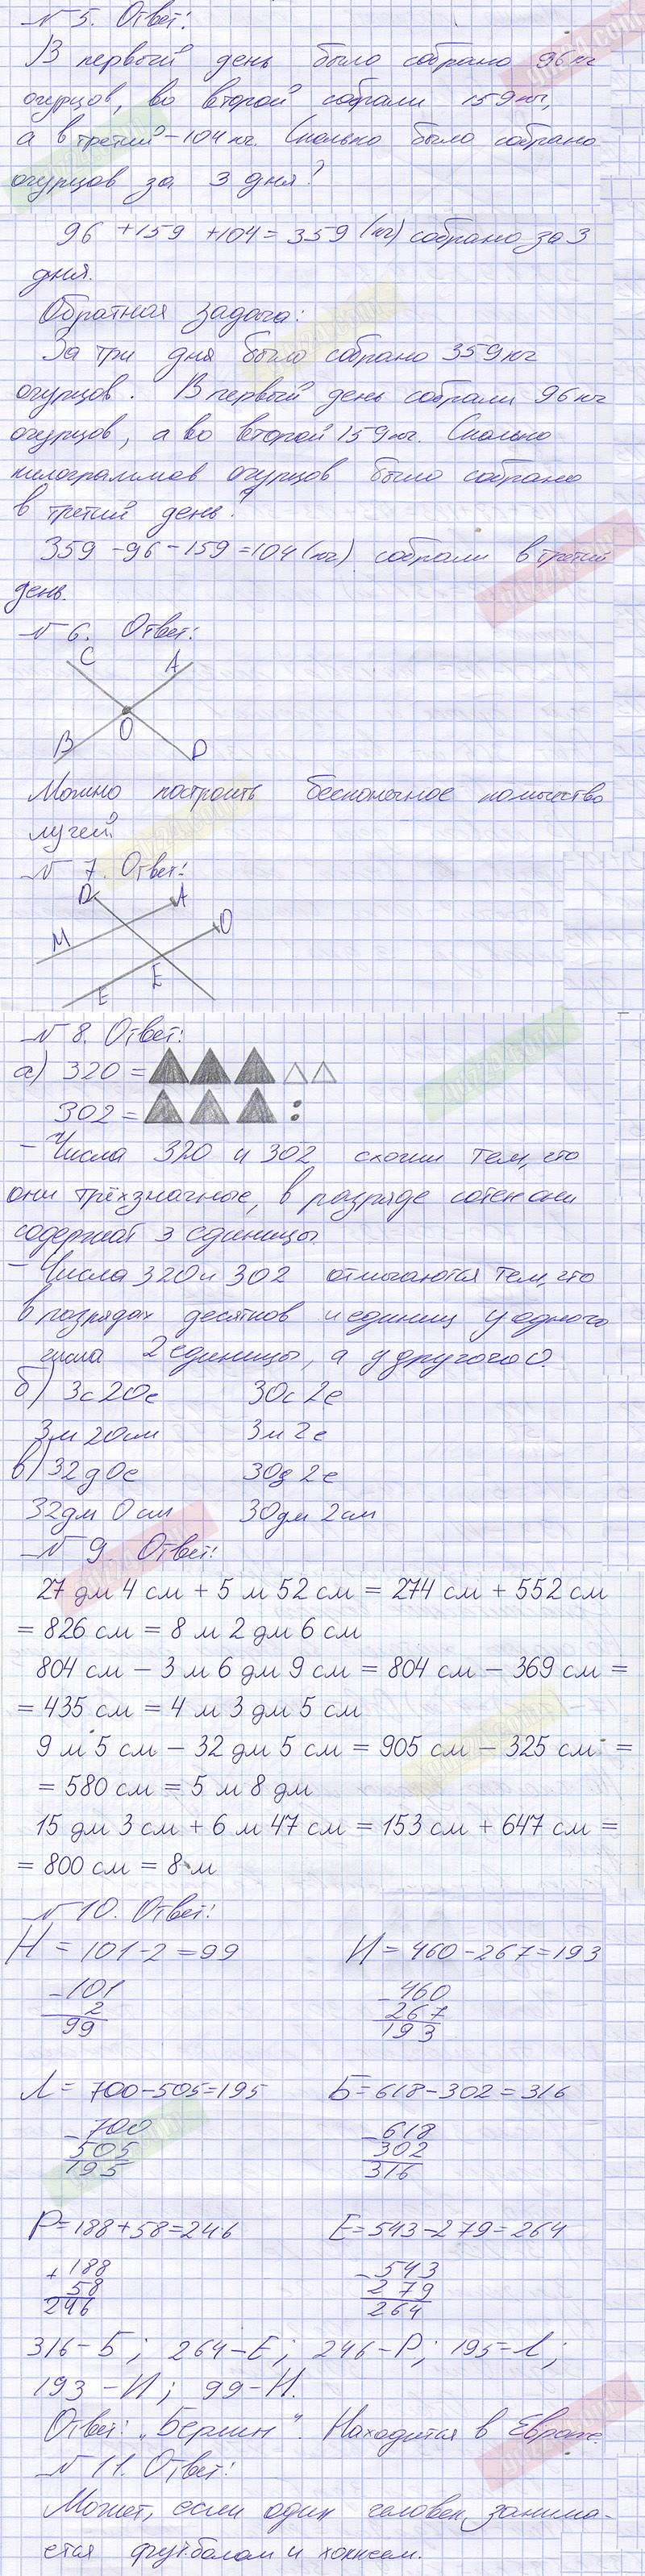 № 5. Ответ:
В первый день было собрано 96 кг
огурцов, во второй собрали 159 кг,
а в третий – 104 кг. Сколько было собрано
огурцов за 3 дня?
96 + 159 + 104 = 359 (кг) собрано за 3
дня.
Обратная задача:
За три дня было собрано 359 кг
огурцов. В первый день собрали 96 кг
огурцов, а во второй 159 кг. Сколько
килограммов огурцов было собрано
в третий день?
359 – 96 – 159 = 104 (кг) собрали в третий
день.
№ 6. Ответ:
C A
O
B D
Можно построить бесконечное количество
лучей.
№ 7. Ответ:
D A O
M
E E
№ 8. Ответ:
а) 320 =
302 =
– Числа 320 и 302 схожи тем, что
они трёхзначные, в разряде сотен они
содержат 3 единицы.
– Числа 320 и 302 отличаются тем, что
в разрядах десятков и единиц у одного
числа 2 единицы, а у другого 0.
б) 3с 20е 30с 2е
3м 20см 3м 2е
в) 32д 0е 30д 2е
32дм 0см 30дм 2см
№ 9. Ответ:
27 дм 4 см + 5 м 52 см = 274 см + 552 см
= 826 см = 8 м 2 дм 6 см
804 см – 3 м 6 дм 9 см = 804 см – 369 см =
= 435 см = 4 м 3 дм 5 см
9 м 5 см – 32 дм 5 см = 905 см – 325 см =
= 580 см = 5 м 8 дм
15 дм 3 см + 6 м 47 см = 153 см + 647 см =
= 800 см = 8 м
№ 10. Ответ:
Н = 101 – 2 = 99 И = 460 – 267 = 193
– 101 – 460
2 267
99 193
Л = 700 – 505 = 195 Б = 618 – 302 = 316
– 700 – 618
505 302
195 316
Р = 188 + 58 = 246 Е = 543 – 279 = 264
+ 188 – 543
58 279
246 264
316 – Б; 264 – Е; 246 – Р; 195 = Л;
193 – И; 99 – Н.
Ответ: „Берлин“. Находится в Европе.
№ 11. Ответ:
Может, если один человек занима-
ется футболом и хоккеем.